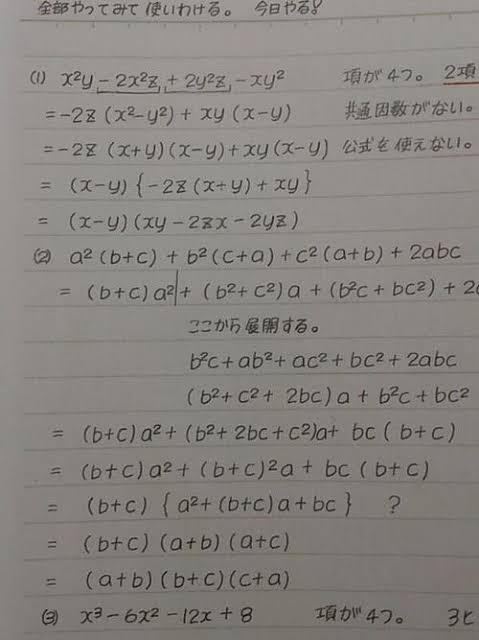 全部やってみて使いわける。 今日やる!
(1) x²y - 2x²z + 2y²z - xy² 項が4つ。 2項
= -2z (x²-y²) + xy (x-y) 共通因数がない。
= -2z (x+y)(x-y) + xy(x-y) 公式を使えない。
= (x-y) {-2z (x+y) + xy}
= (x-y) (xy - 2zx - 2yz)
(2) a² (b+c) + b² (c+a) + c² (a+b) + 2abc
= (b+c) a² + (b²+c²) a + (b²c + bc²) + 2
ここから展開する。
b²c + ab² + ac² + bc² + 2abc
(b² + c² + 2bc) a + b²c + bc²
= (b+c) a² + (b² + 2bc + c²)a + bc (b+c)
= (b+c) a² + (b+c)²a + bc (b+c)
= (b+c) {a² + (b+c)a + bc} ?
= (b+c) (a+b) (a+c)
= (a+b) (b+c) (c+a)
(3) x³ - 6x² - 12x + 8 項が4つ。 3